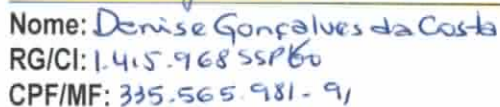 Nome: Denise Gonçalves da Costa
RG/CI: 1.415.968 SSPGO
CPF/MF: 335.565.981-91